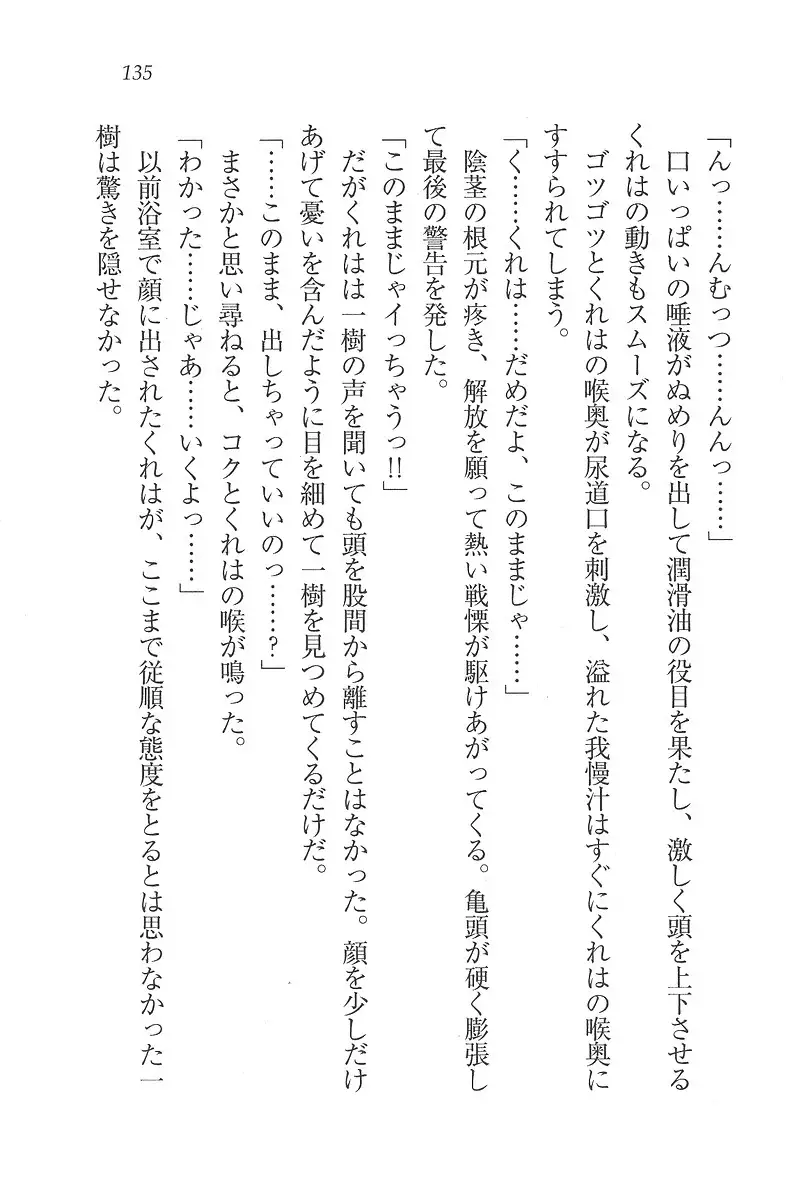 135
「んっ……んむっつ……んんっ……」
口いっぱいの唾液がぬめりを出して潤滑油の役目を果たし、激しく頭を上下させる
くれはの動きもスムーズになる。
ゴツゴツとくれはの喉奥が尿道口を刺激し、溢れた我慢汁はすぐにくれはの喉奥に
すすられてしまう。
「く……くれは……だめだよ、このままじゃ……」
陰茎の根元が疼き、解放を願って熱い戦慄が駆けあがってくる。亀頭が硬く膨張し
て最後の警告を発した。
「このままじゃイっちゃうっ!!」
だがくれはは一樹の声を聞いても頭を股間から離すことはなかった。顔を少しだけ
あげて憂いを含んだように目を細めて一樹を見つめてくるだけだ。
「……このまま、出しちゃっていいのっ……?」
まさかと思い尋ねると、コクとくれはの喉が鳴った。
「わかった……じゃあ……いくよっ……」
以前浴室で顔に出されたくれはが、ここまで従順な態度をとるとは思わなかった一
樹は驚きを隠せなかった。